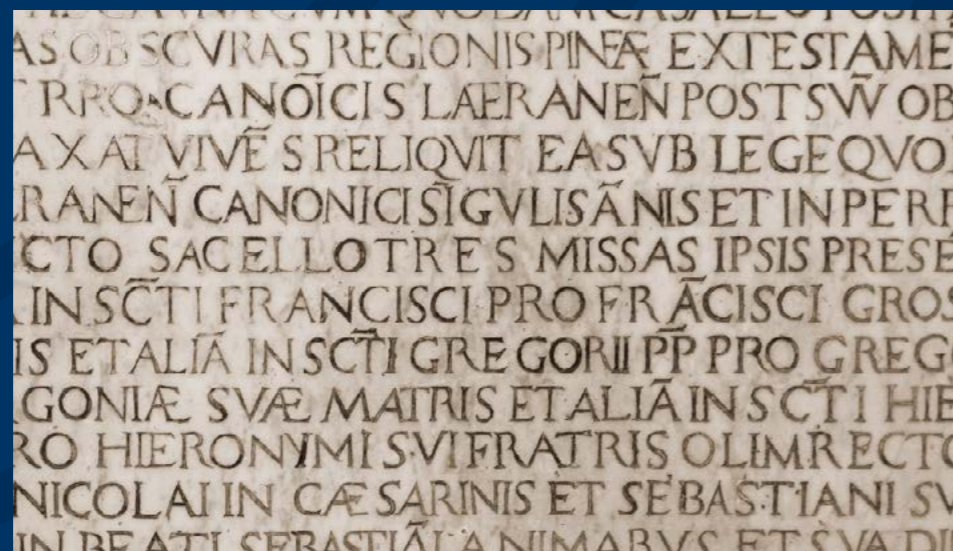 AS OBSCVRAS REGIONIS PINÆ EX TESTAME
CANÕICIS LAERANEÑ POST SVV̄ OB
AXAT VIVẼS RELIQVIT EA SVB LEGE QVO
RANEÑ CANONICI SĨGVLIS ÃNIS ET IN PERP
CTO SACELLO TRES MISSAS IPSIS PRESẼ
IN SC̃TI FRANCISCI PRO FRÃCISCI GROS
IS ET ALIÃ IN SC̃TI GREGORII PP̃ PRO GREG
GONIÆ SVÆ MATRIS ET ALIÃ IN SC̃TI HIE
RO HIERONYMI SVI FRATRIS OLIM RECTO
NICOLAI IN CÆSARINIS ET SEBASTIANI SV
IN BEATI SEBASTIÃI ANIMABVS ET SVA